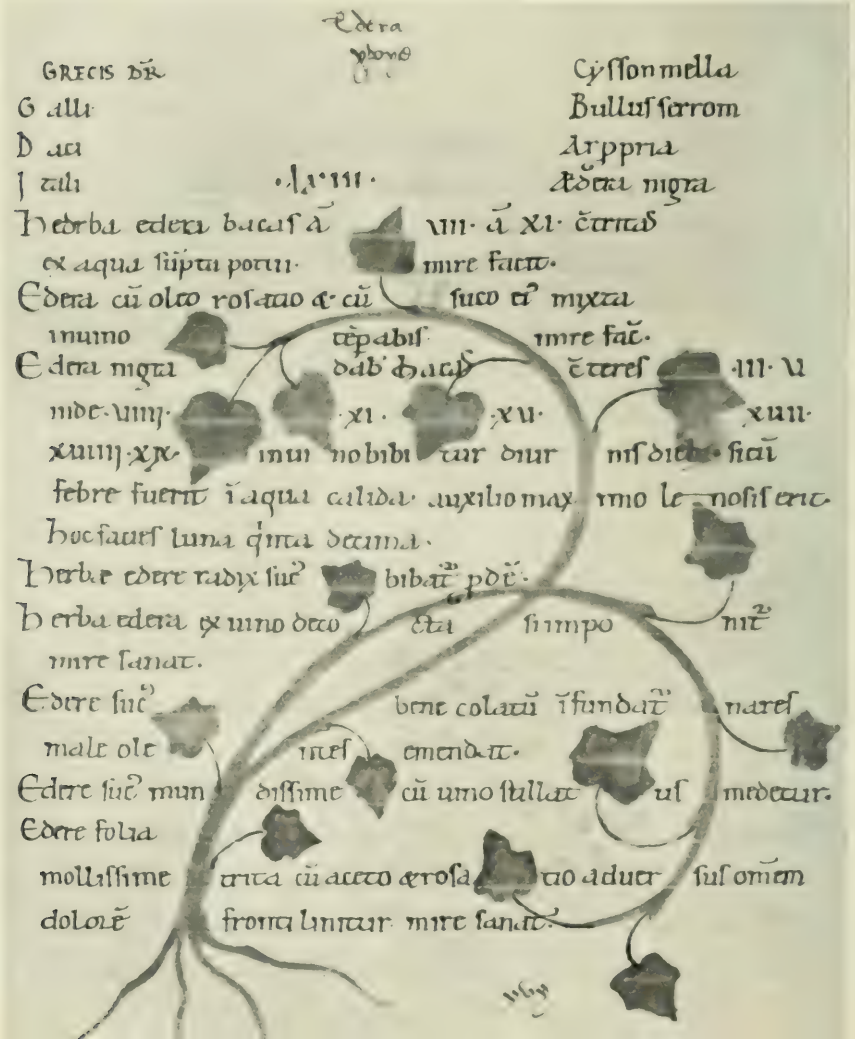 Edera
GRECIS DR̄ Cyſſonmella
Galli Bulluſſerrom
Daci Arppria
Itali ·la·iii· Ædera nigra
hedrba edera bacaſ ā VIII· ā XI· c̄tritaſ
ex aqua sūptu potui· mire facit·
Edera cū oleo roſatio & cū ſuco ei᾿ mixta
inuino tēpabiſ mire fac̄·
Edera nigra dab᾿ bacaſ c̄tereſ ·III· V
inde·VIIII· ·XI· ·XV· XVII·
XVIIII·XIX· inui nobibi tur diur niſ dieb᾿ ſicū
febre fuerit īaqua calida· auxilio max imo le noſiſ erit·
hocfacieſ luna q̍nta decima·
herbæ edere radix ſuc᾿ bibat᾿ pdē·
herba edera ex uino deco cta ſiimpo nit᾿
mire ſanat·
Edere ſuc᾿ bene colatū īfundat᾿ nareſ
male ole nteſ emendat·
Edere ſuc᾿ mun diſſime cū uino ſtillat uſ medetur·
Edere folia
molliſſime trita cū aceto æroſa tio aduer ſuſ omēm
dolorē fronti linitur mire ſanat·